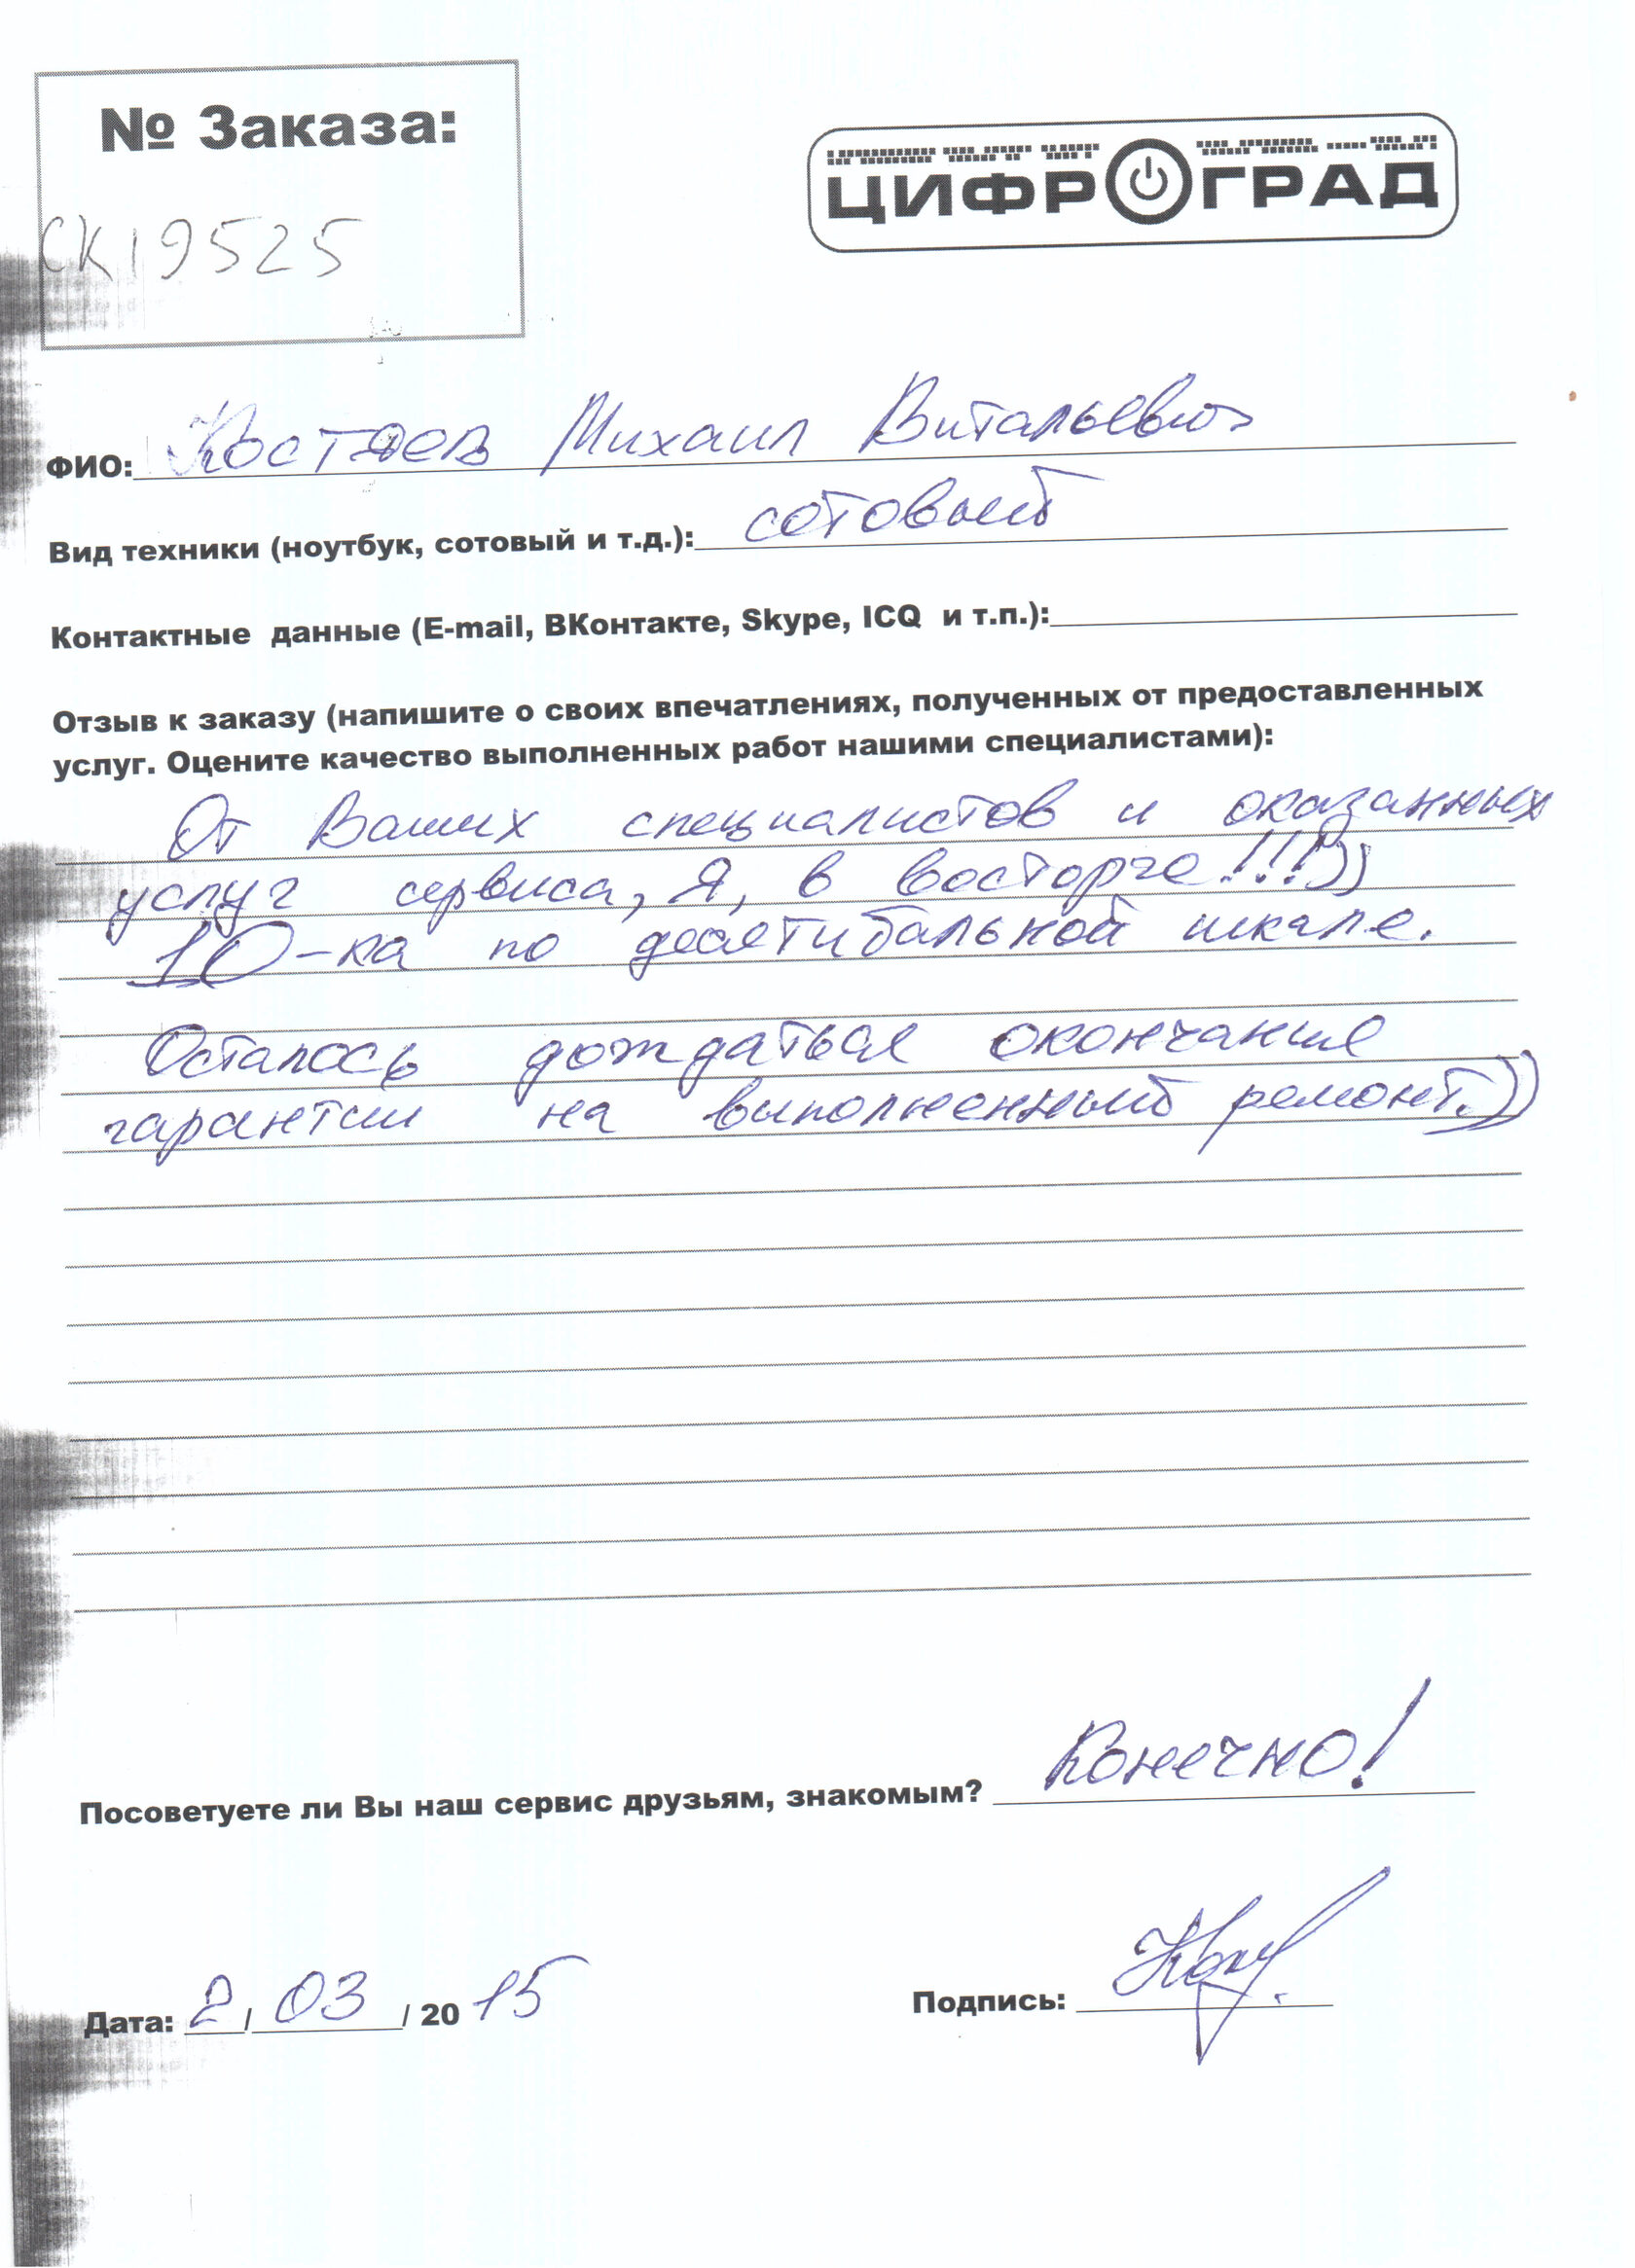 № Заказа:
СК19525
ЦИФРОГРАД
ФИО: Костяев Михаил Витальевич
Вид техники (ноутбук, сотовый и т.д.): сотовый
Контактные данные (E-mail, ВКонтакте, Skype, ICQ и т.п.):
Отзыв к заказу (напишите о своих впечатлениях, полученных от предоставленных
услуг. Оцените качество выполненных работ нашими специалистами):
От Ваших специалистов и оказанных
услуг сервиса, Я, в восторге!!!))
10-ка по десятибальной шкале.
Осталось дождаться окончания
гарантии на выполненный ремонт.))
Посоветуете ли Вы наш сервис друзьям, знакомым? Конечно!
Дата: 2 / 03 / 20 15
Подпись: